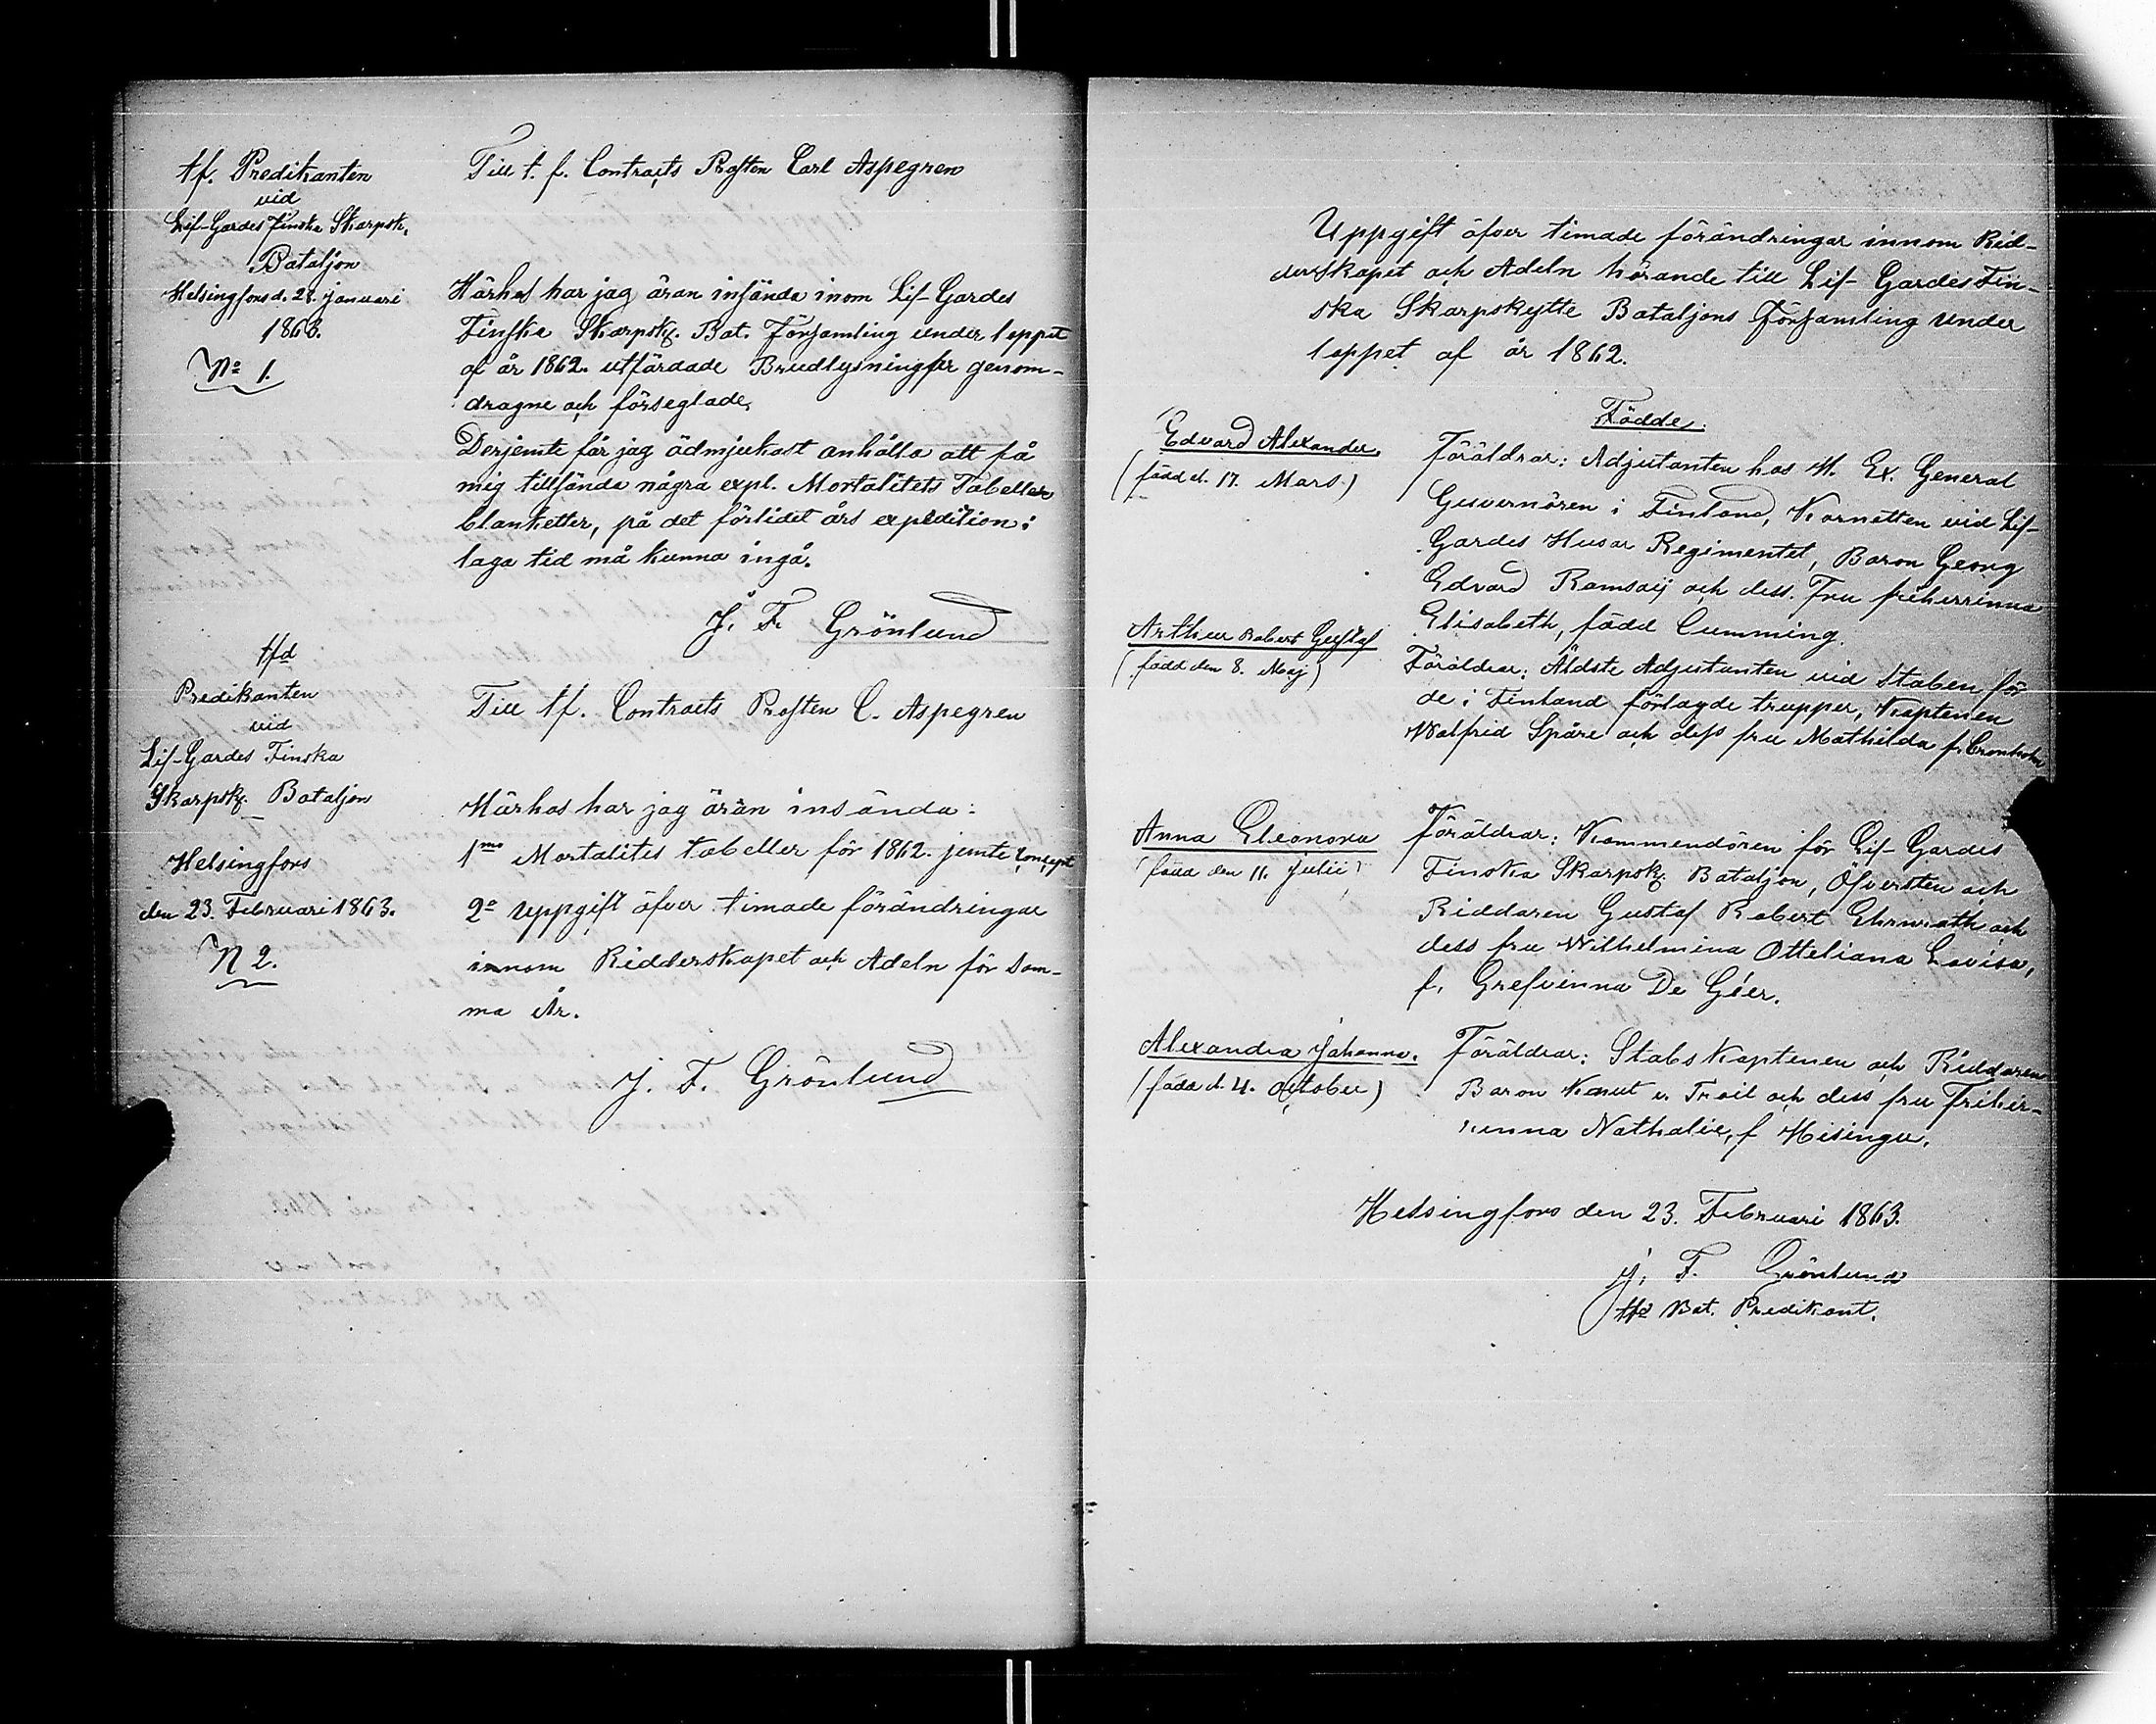 tf. Predikanten
vid
Lif-Gardes Finska Skarpsk.
Bataljon
Helsingfors d. 28. Januari
1863.
No 1.
Till t. f. Contracts Prosten Carl Aspegren
Härhos har jag äran insända inom Lif-Gardes
Finska Skarpsk. Bat. Församling under loppet
af år 1862. utfärdade Brudlysningar genom-
dragne och förseglade.
Derjemte får jag ödmjukast anhålla att få
mig tillsända några expl. Mortalitets Tabeller
blanketter, på det förlidet års expedition i
laga tid må kunna ingå.
J. F. Grönlund
tfd
Predikanten
vid
Lif-Gardes Finska
Skarpsk. Bataljon
Helsingfors
den 23. Februari 1863.
N 2.
Till tf. Contracts Prosten C. Aspegren
Härhos har jag äran insända:
1mo Mortalitets tabeller för 1862. jemte Concept
2o Uppgift öfver timade förändringar
innom Ridderskapet och Adeln för sam-
ma År.
J. F. Grönlund
Uppgift öfver timade förändringar innom Rid-
derskapet och Adeln hörande till Lif-Gardes Fin-
ska Skarpskytte Bataljons Församling under
loppet af år 1862.
Födde.
Edvard Alexander.
(född d. 17. Mars)
Föräldrar: Adjutanten hos H. Ex. General
Guvernören i Finland, Kornetten vid Lif-
Gardes Husar Regimentet, Baron Georg
Edvard Ramsaij och dess Fru friherrinna
Elisabeth, född Cumming.
Arthur Robert Gustaf
(född den 8. Maj)
Föräldrar: Äldste Adjutanten vid Staben för
de i Finland förlagde trupper, Kaptenen
Walfrid Spåre och dess fru Mathilda f. Cronholm
Anna Eleonora
(född den 11. Julii)
Föräldrar: Kommendören för Lif-Gardes
Finska Skarpsk. Bataljon, Öfversten och
Riddaren Gustaf Robert Ehrnrooth och
dess fru Wilhelmina Otteliana Lovisa,
f. Grefvinna De Géer.
Alexandra Johanna.
(född d. 4. October)
Föräldrar: Stabs Kaptenen och Riddaren
Baron Knut v. Troil och dess fru Friher-
rinna Nathalie, f Hisinger.
Helsingfors den 23. Februari 1863.
J. F. Grönlund
tfd Bat. Predikant.